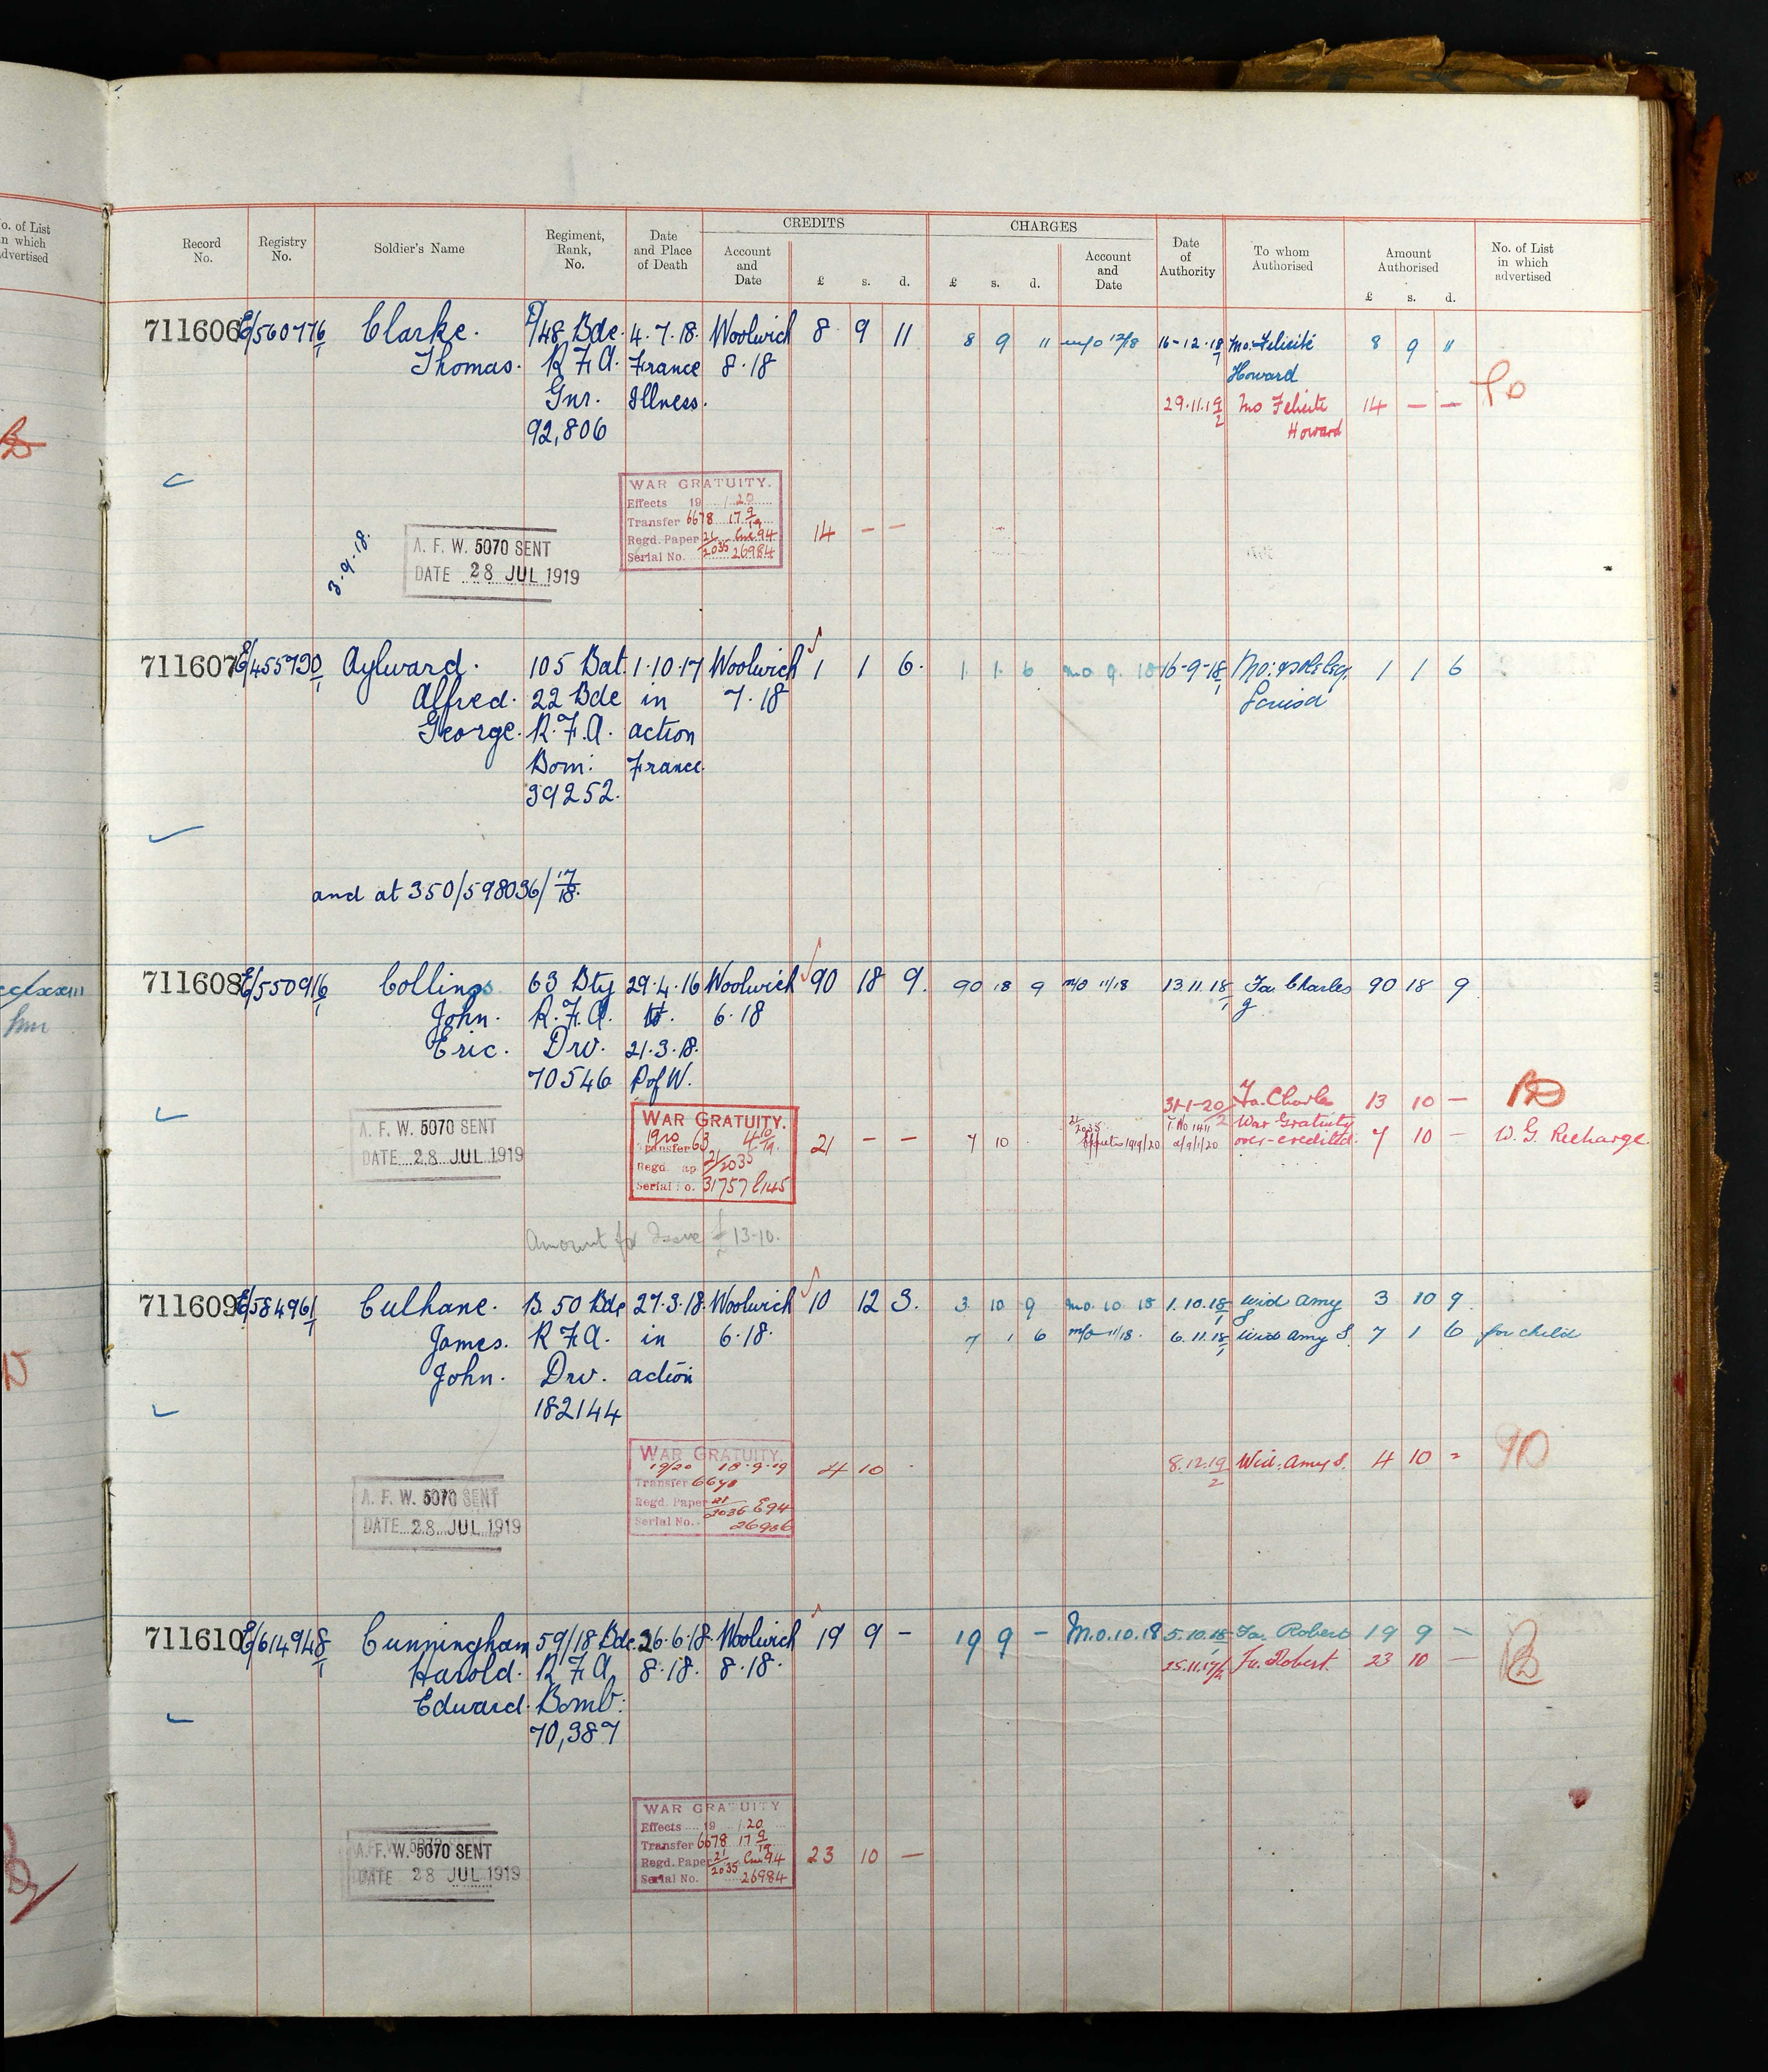 o. of List
n which
dvertised
Record No.
Registry No.
Soldier's Name
Regiment, Rank, No.
Date and Place of Death
CREDITS
Account and Date
£ s. d.
CHARGES
£ s. d.
Account and Date
Date of Authority
To whom Authorised
Amount Authorised
£ s. d.
No. of List in which advertised
711606 E/560776/1 Clarke. 48 Bde. 4.7.18. Woolwich 8 9 11 8 9 11 m/o 12/8 16-12-18/1 Mo: Felicité 8 9 11
Thomas. R.F.A. France 8.18 Howard
Gnr. Illness. 29.11.19/2 Mo Felicite 14 — —
92,806 Howard
WAR GRATUITY.
Effects 19 /20
Transfer 6678 17 9/19
Regd. Paper 21/2035 94
Serial No. 26984
14 — —
3.9.18.
A. F. W. 5070 SENT
DATE 28 JUL 1919
711607 E/455790/1 Aylward. 105 Bat. 1.10.17 Woolwich 1 1 6. 1 1 6 mo 9. 18 16-9-18/1 Mo: & sole Leg. 1 1 6
Alfred. 22 Bde in 7.18 Louisa
George. R.F.A. action
Bom: France.
39252.
and at 350/598036/17/18.
711608 E/550916/1 Collings 63 Bty 29.4.16 Woolwich 90 18 9. 90 18 9 m/o 11/18 13.11.18/1 Fa. Charles 90 18 9
John. R.F.A. to. 6.18 g
Eric. Drv. 21.3.18.
70546 P of W.
31-1-20/2 Fa. Charles 13 10 —
A. F. W. 5070 SENT
DATE 28 JUL 1919
WAR GRATUITY.
1920 63 4 10/19.
Transfer
Regd. 21/2035
Serial No. 31757 E145
21 — — 7 10 21/2035 Effects 1919/20 T. No 1411 2/9/1/20 War Gratuity over-credited. 7 10 — W.G. Recharge
Amount for Issue £13-10.
711609 E/584961/1 Culhane. B. 50 Bde 27.3.18. Woolwich 10 12 3. 3 10 9 mo. 10 18 1.10.18/1 Wid Amy 3 10 9
S
James. R.F.A. in 6.18. 7 1 6 m/o 11/18. 6.11.18/1 Wid Amy S. 7 1 6 for child
John. Drv. action
182144
WAR GRATUITY.
19/20 18.9.19
Transfer 6670
Regd. Paper 21/2036 E94
Serial No. 26986
4 10 8.12.19/2 Wid: Amy S. 4 10 -
A. F. W. 5070 SENT
DATE 28 JUL 1919
711610 E/614948/1 Cunningham 59/18 Bde. 26.6.18. Woolwich 19 9 — 19 9 — M.O.10.18 5.10.18/1 Fa. Robert 19 9 —
Harold. R.F.A. 8.18. 8.18. 25.11.19/2 Fa. Robert. 23 10 —
Edward. Bomb:
70,387
WAR GRATUITY
Effects 19 /20
Transfer 6678 17 9/19
Regd. Paper 21/2035 94
Serial No. 26984
23 10 —
A. F. W. 5070 SENT
DATE 28 JUL 1919